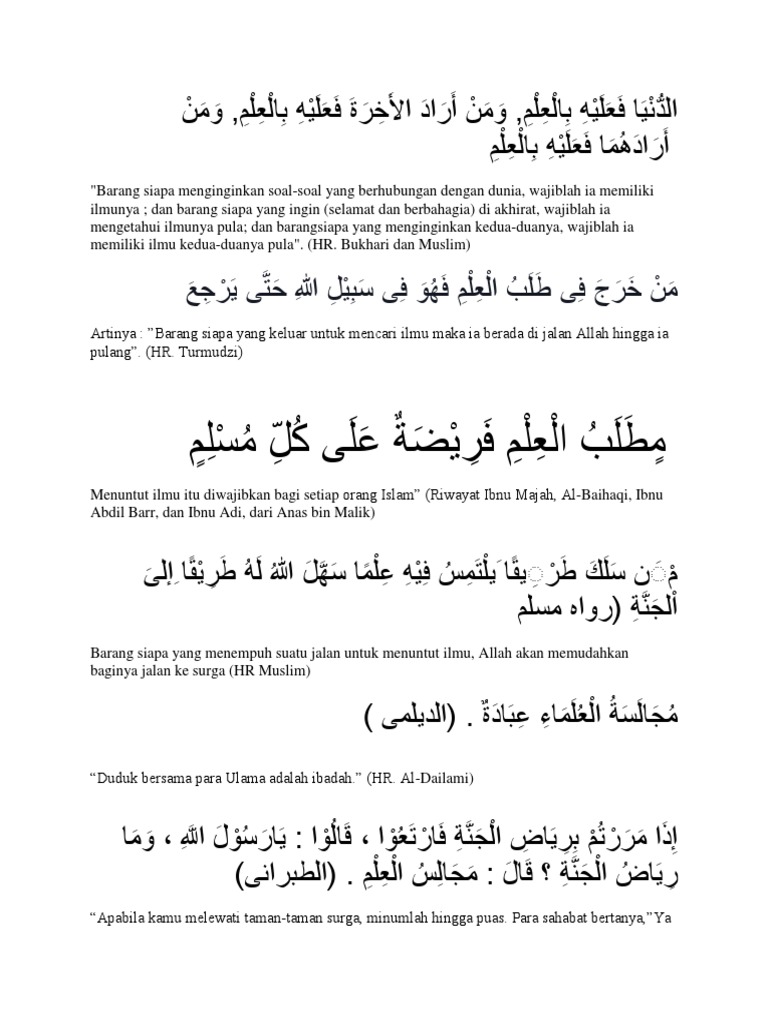 الدُّنْيَا فَعَلَيْهِ بِالْعِلْمِ, وَمَنْ أَرَادَ الأَخِرَةَ فَعَلَيْهِ بِالْعِلْمِ, وَمَنْ
أَرَادَهُمَا فَعَلَيْهِ بِالْعِلْمِ
"Barang siapa menginginkan soal-soal yang berhubungan dengan dunia, wajiblah ia memiliki
ilmunya ; dan barang siapa yang ingin (selamat dan berbahagia) di akhirat, wajiblah ia
mengetahui ilmunya pula; dan barangsiapa yang menginginkan kedua-duanya, wajiblah ia
memiliki ilmu kedua-duanya pula". (HR. Bukhari dan Muslim)
مَنْ خَرَجَ فِى طَلَبُ الْعِلْمِ فَهُوَ فِى سَبِيْلِ اللهِ حَتَّى يَرْجِعَ
Artinya : ”Barang siapa yang keluar untuk mencari ilmu maka ia berada di jalan Allah hingga ia
pulang”. (HR. Turmudzi)
مٍطَلَبُ الْعِلْمِ فَرِيْضَةٌ عَلَى كُلِّ مُسْلِمٍ
Menuntut ilmu itu diwajibkan bagi setiap orang Islam” (Riwayat Ibnu Majah, Al-Baihaqi, Ibnu
Abdil Barr, dan Ibnu Adi, dari Anas bin Malik)
مْ َنِ سَلَكَ طَرْ ِيقًا َيلْتَمِسُ فِيْهِ عِلْمًا سَهَّلَ اللهُ لَهُ طَرِيْقًا ِإلىَ
اْلجَنَّةِ (رواه مسلم
Barang siapa yang menempuh suatu jalan untuk menuntut ilmu, Allah akan memudahkan
baginya jalan ke surga (HR Muslim)
مُجَالَسَةُ الْعُلَمَاءِ عِبَادَةٌ . (الديلمى )
“Duduk bersama para Ulama adalah ibadah.” (HR. Al-Dailami)
إِذَا مَرَرْتُمْ بِرِيَاضِ الْجَنَّةِ فَارْتَعُوْا ، قَالُوْا : يَارَسُوْلَ اللَّهِ ، وَمَا
رِيَاضُ الْجَنَّةِ ؟ قَالَ : مَجَالِسُ الْعِلْمِ . (الطبرانى)
“Apabila kamu melewati taman-taman surga, minumlah hingga puas. Para sahabat bertanya,”Ya